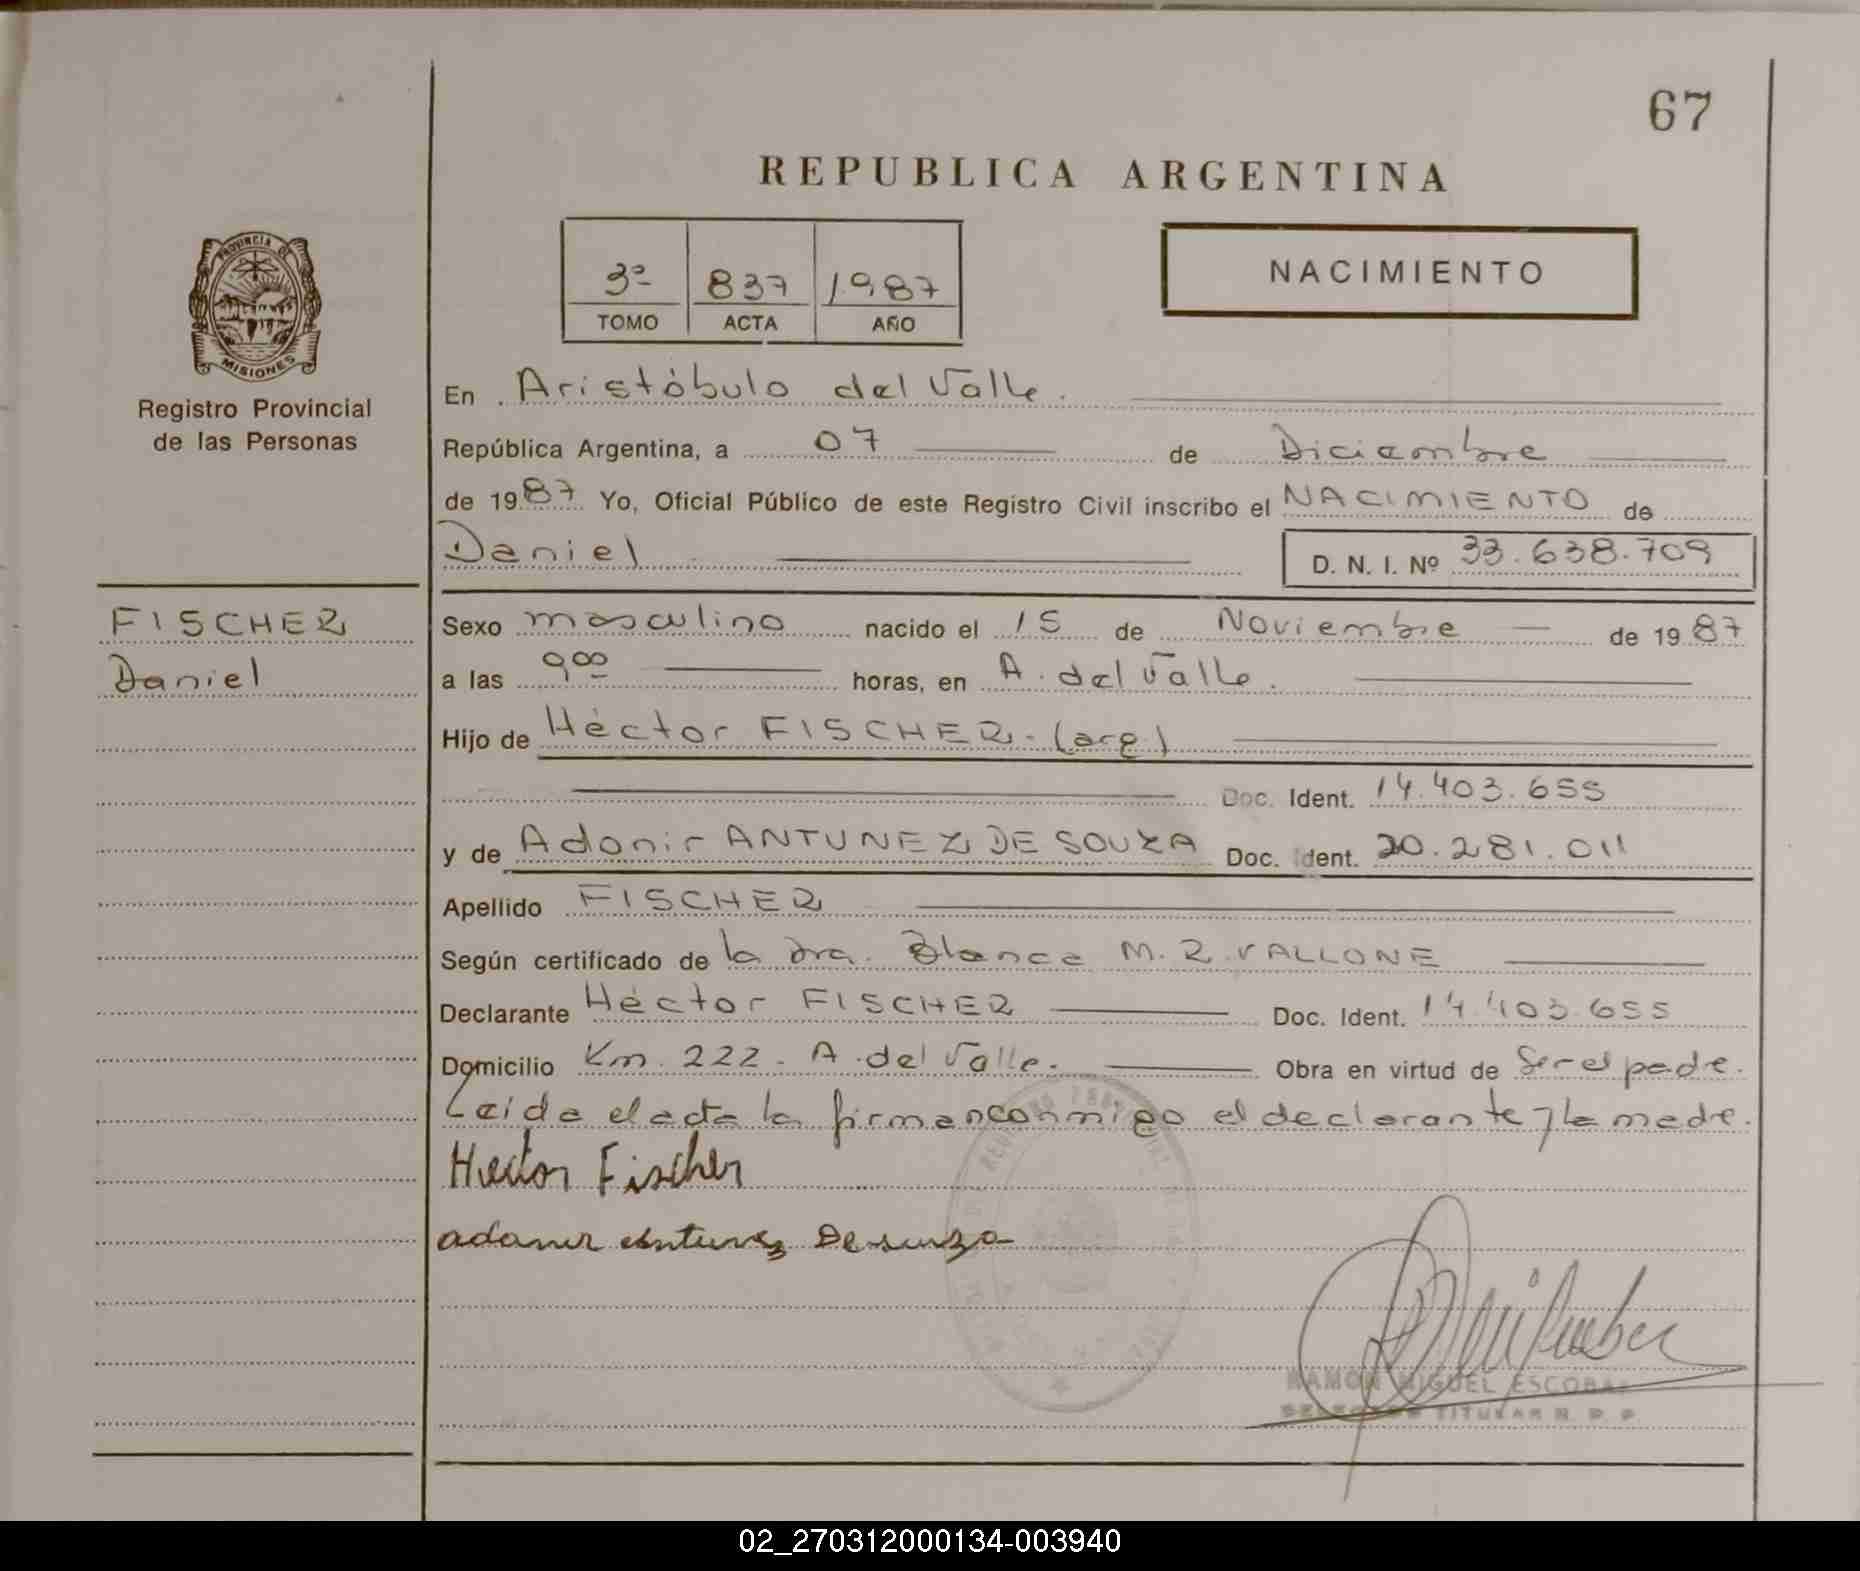 67
REPUBLICA ARGENTINA
3º 837 1987
TOMO ACTA AÑO
NACIMIENTO
PROVINCIA DE
MISIONES
Registro Provincial
de las Personas
FISCHER
Daniel
En Aristóbulo del Valle.
República Argentina, a 07 de Diciembre
de 1987 Yo, Oficial Público de este Registro Civil inscribo el NACIMIENTO de
Daniel D. N. I. Nº 33.638.709
Sexo masculino nacido el 15 de Noviembre de 1987
a las 9 00 horas, en A. del Valle.
Hijo de Héctor FISCHER. (arg)
Doc. Ident. 14.403.655
y de Adonir ANTUNEZ DE SOUZA Doc. Ident. 20.281.011
Apellido FISCHER
Según certificado de la Dra. Blanca M. R. VALLONE
Declarante Héctor FISCHER Doc. Ident. 14.403.655
Domicilio Km. 222 - A. del Valle. Obra en virtud de Ser el padre.
Leida el acta la firman conmigo el declarante y la madre.
Hector Fischer
adanir antunez De souza
RAMON MIGUEL ESCOBAR
TITULAR R. P. P.
02_270312000134-003940